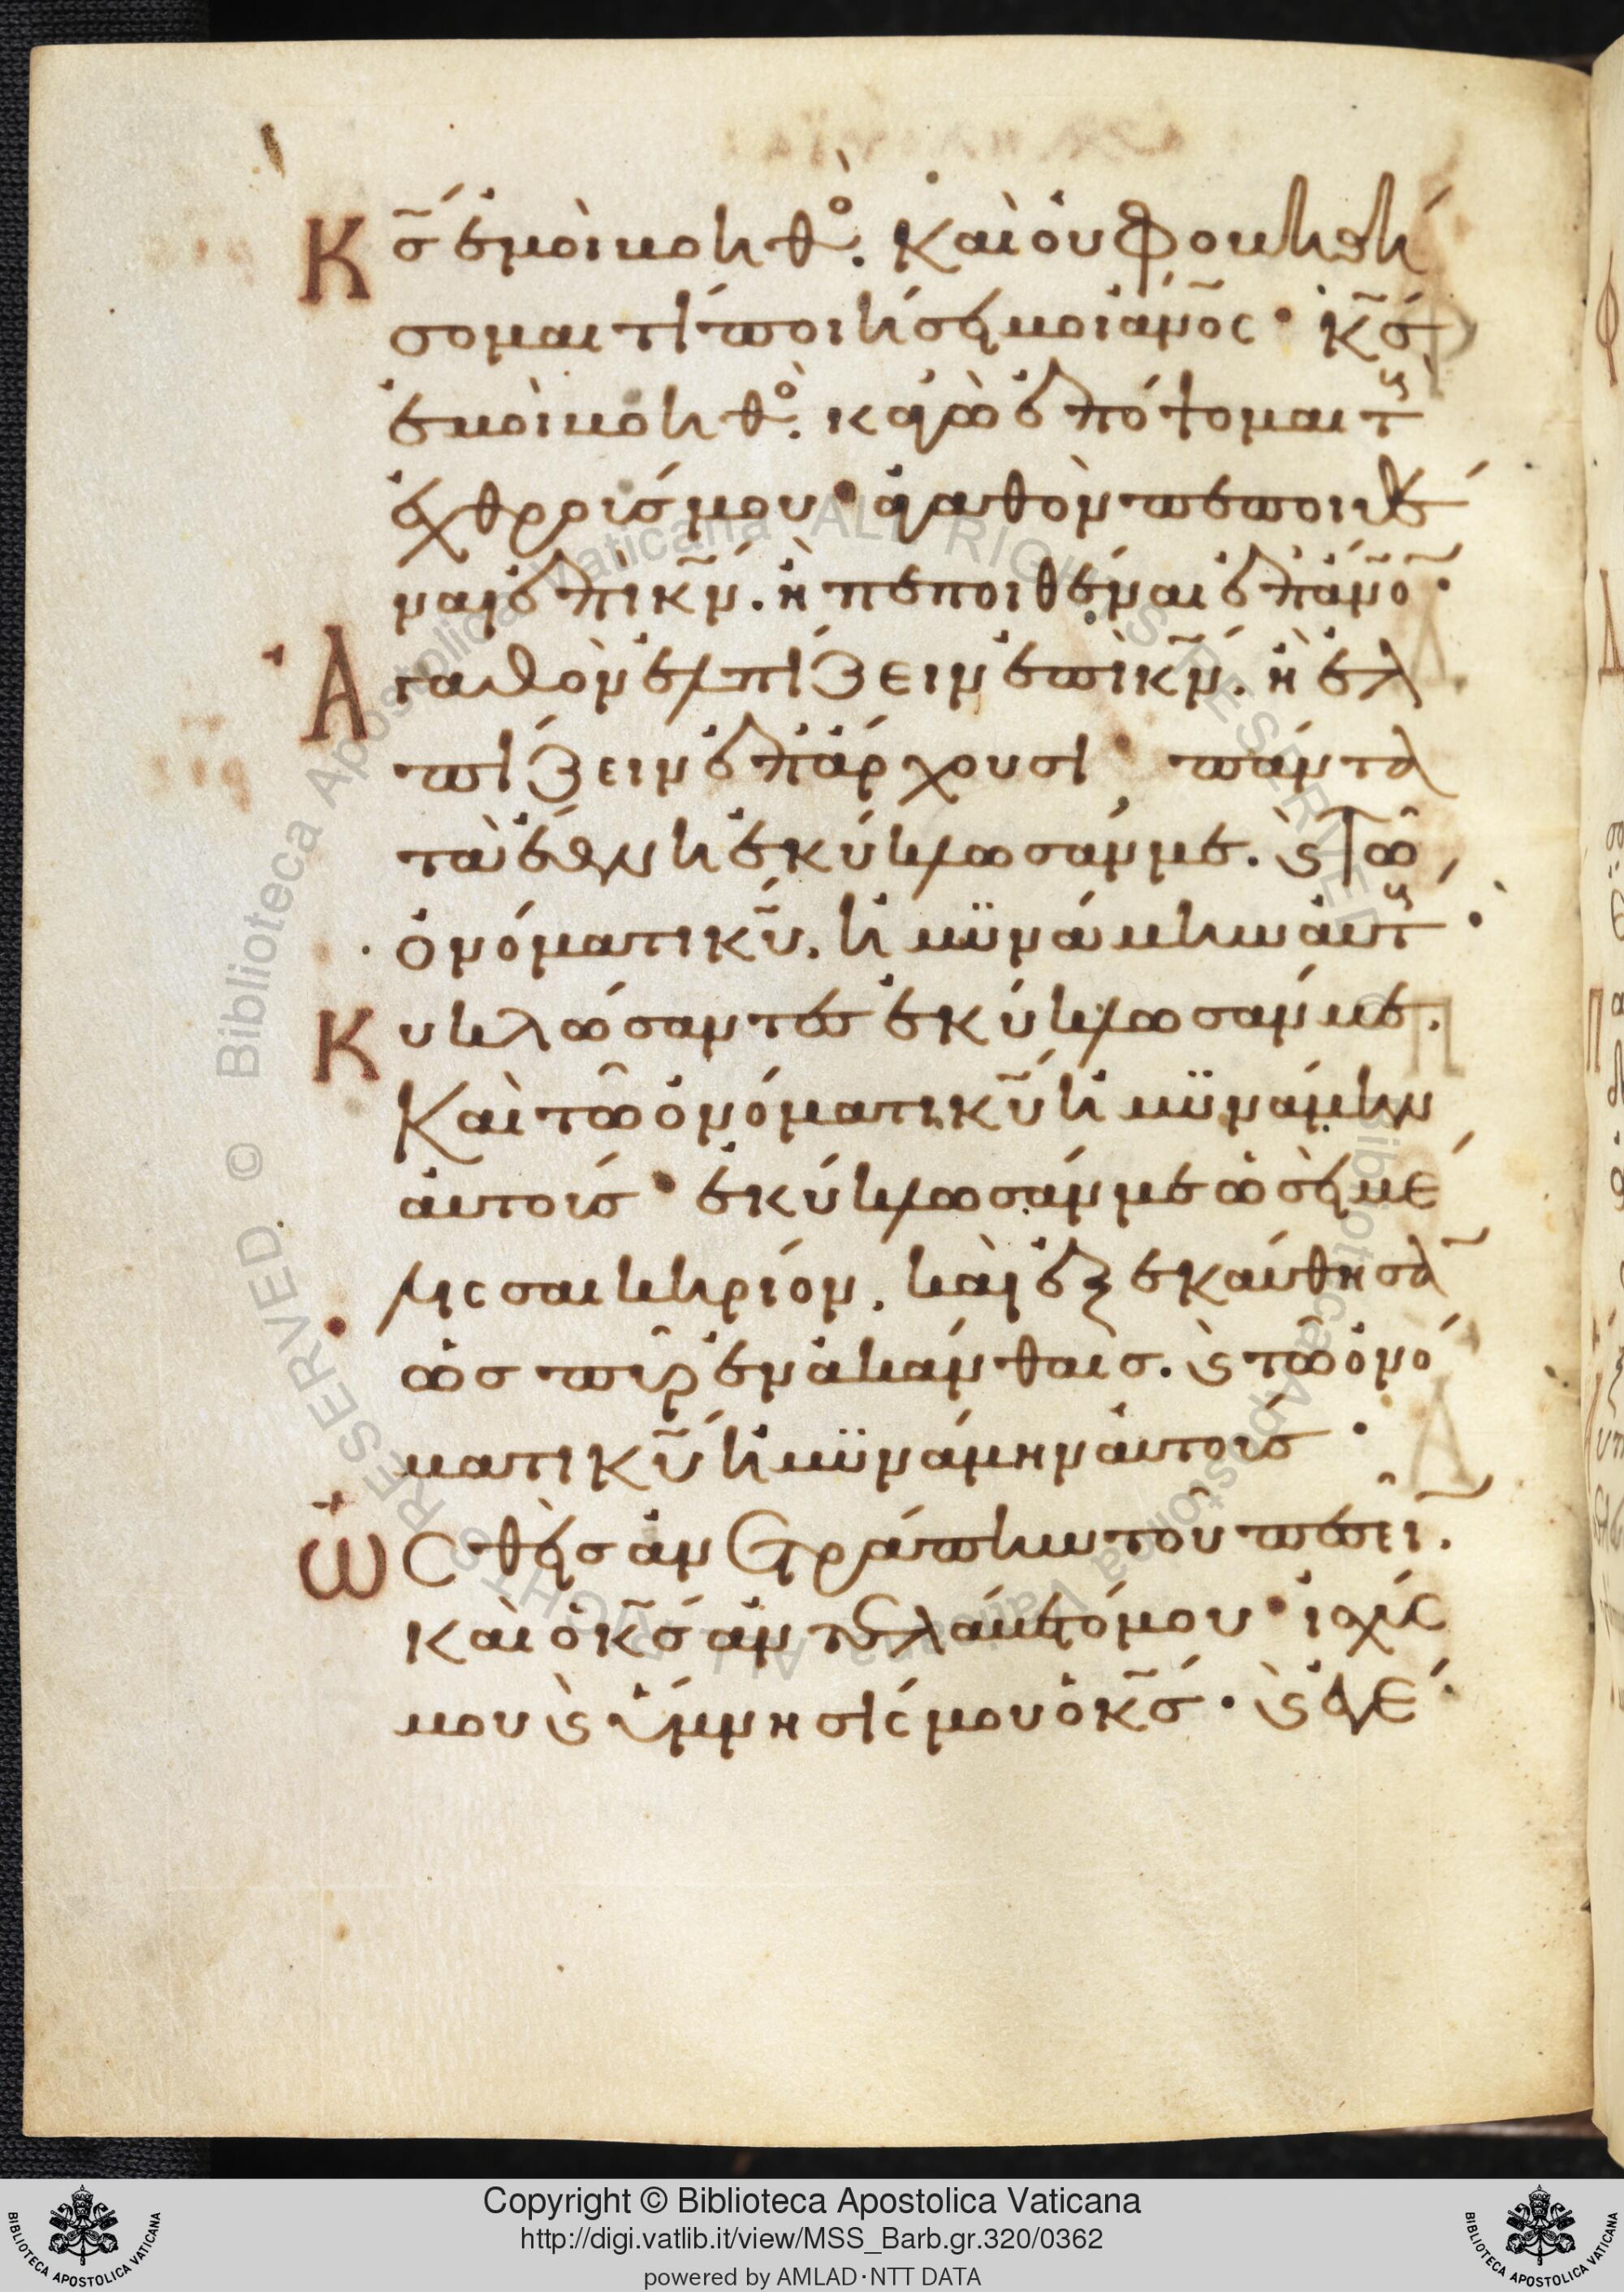 Κς ἐμοὶ βοηθο. Καὶ οὐ φοβηθή
σομαι τί ποιήσει μοι ἄνος· κς
ἐμοὶ βοηθο. κἀγὼ ἐπόψομαι τ
ἐχθρούς μου· ἀγαθὸν πεποιθέ
ναι ἐπὶ κν. ἢ πεποιθέναι ἐπ' ἄνο·
Ἀγαθὸν ἐλπίζειν ἐπὶ κν. ἢ ἐλ
πίζειν ἐπ' ἄρχουσι, πάντα
τὰ ἔθνη ἐκύκλωσάν με. ϗ τῶ
ὀνόματι κυ, ἠμυνάμην αὐτ·
Κυκλώσαντες ἐκύκλωσάν με.
Καὶ τῶ ὀνόματι κυ ἠμυνάμην
αὐτούς· ἐκύκλωσάν με ὡσεὶ μέ
λισσαι κηρίον, καὶ ἐξεκαύθησα
ὡς πῦρ ἐν ἀκάνθαις. ϗ τῶ ὀνό
ματι κυ ἠμυνάμην αὐτούς·
Ὠσθεὶς ἀνετράπην τοῦ πεσεῖ.
καὶ ὁ κς ἀντελάβετό μου· ἰσχύς
μου ϗ ὕμνησίς μου ὁ κς· ϗ ἐγέ
Copyright © Biblioteca Apostolica Vaticana
http://digi.vatlib.it/view/MSS_Barb.gr.320/0362
powered by AMLAD·NTT DATA
BIBLIOTECA APOSTOLICA VATICANA
BIBLIOTECA APOSTOLICA VATICANA
© Biblioteca Apostolica Vaticana ALL RIGHTS RESERVED